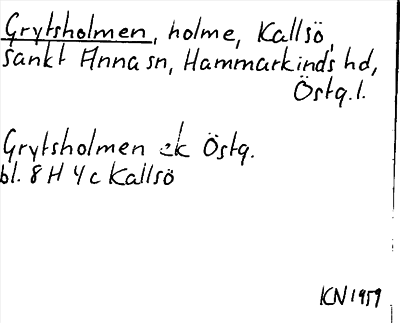 Grytsholmen, holme, Kallsö,
Sankt Anna sn, Hammarkinds hd,
Östg.l.
Grytsholmen ek Östg.
bl. 8 H 4 c Kallsö
KN 1959